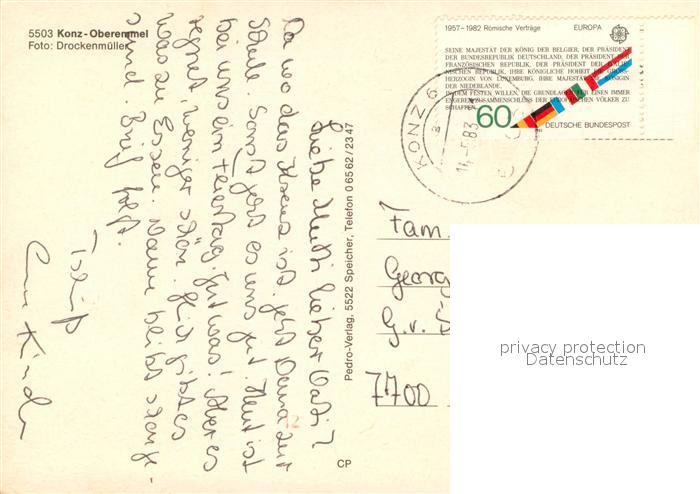 5503 Konz-Oberemmel
Foto: Drockenmüller
1957–1982 Römische Verträge EUROPA
SEINE MAJESTÄT DER KÖNIG DER BELGIER, DER PRÄSIDENT
DER BUNDESREPUBLIK DEUTSCHLAND, DER PRÄSIDENT DER
FRANZÖSISCHEN REPUBLIK, DER PRÄSIDENT DER ITALIE-
NISCHEN REPUBLIK, IHRE KÖNIGLICHE HOHEIT DIE GROSS-
HERZOGIN VON LUXEMBURG, IHRE MAJESTÄT DIE KÖNIGIN
DER NIEDERLANDE,
IN DEM FESTEN WILLEN, DIE GRUNDLAGEN FÜR EINEN IMMER
ENGEREN ZUSAMMENSCHLUSS DER EUROPÄISCHEN VÖLKER ZU
SCHAFFEN
60
DEUTSCHE BUNDESPOST
KONZ
14.-5.83
Liebe Mutti, lieber Vati!
Da wo das Kreuz ist, geht Dana zur
Schule. Sonst geht es uns gut. Heut ist
bei uns ein Feiertag. Gut was! Aber es
regnet, weniger schön.
was zu Essen. Dann bleibt
Brief folgt.
Tschüß
Kinder
Pedro-Verlag, 5522 Speicher, Telefon 0 65 62 / 23 47
CP
Fam.
Georg
G.v.
7700
privacy protection
Datenschutz